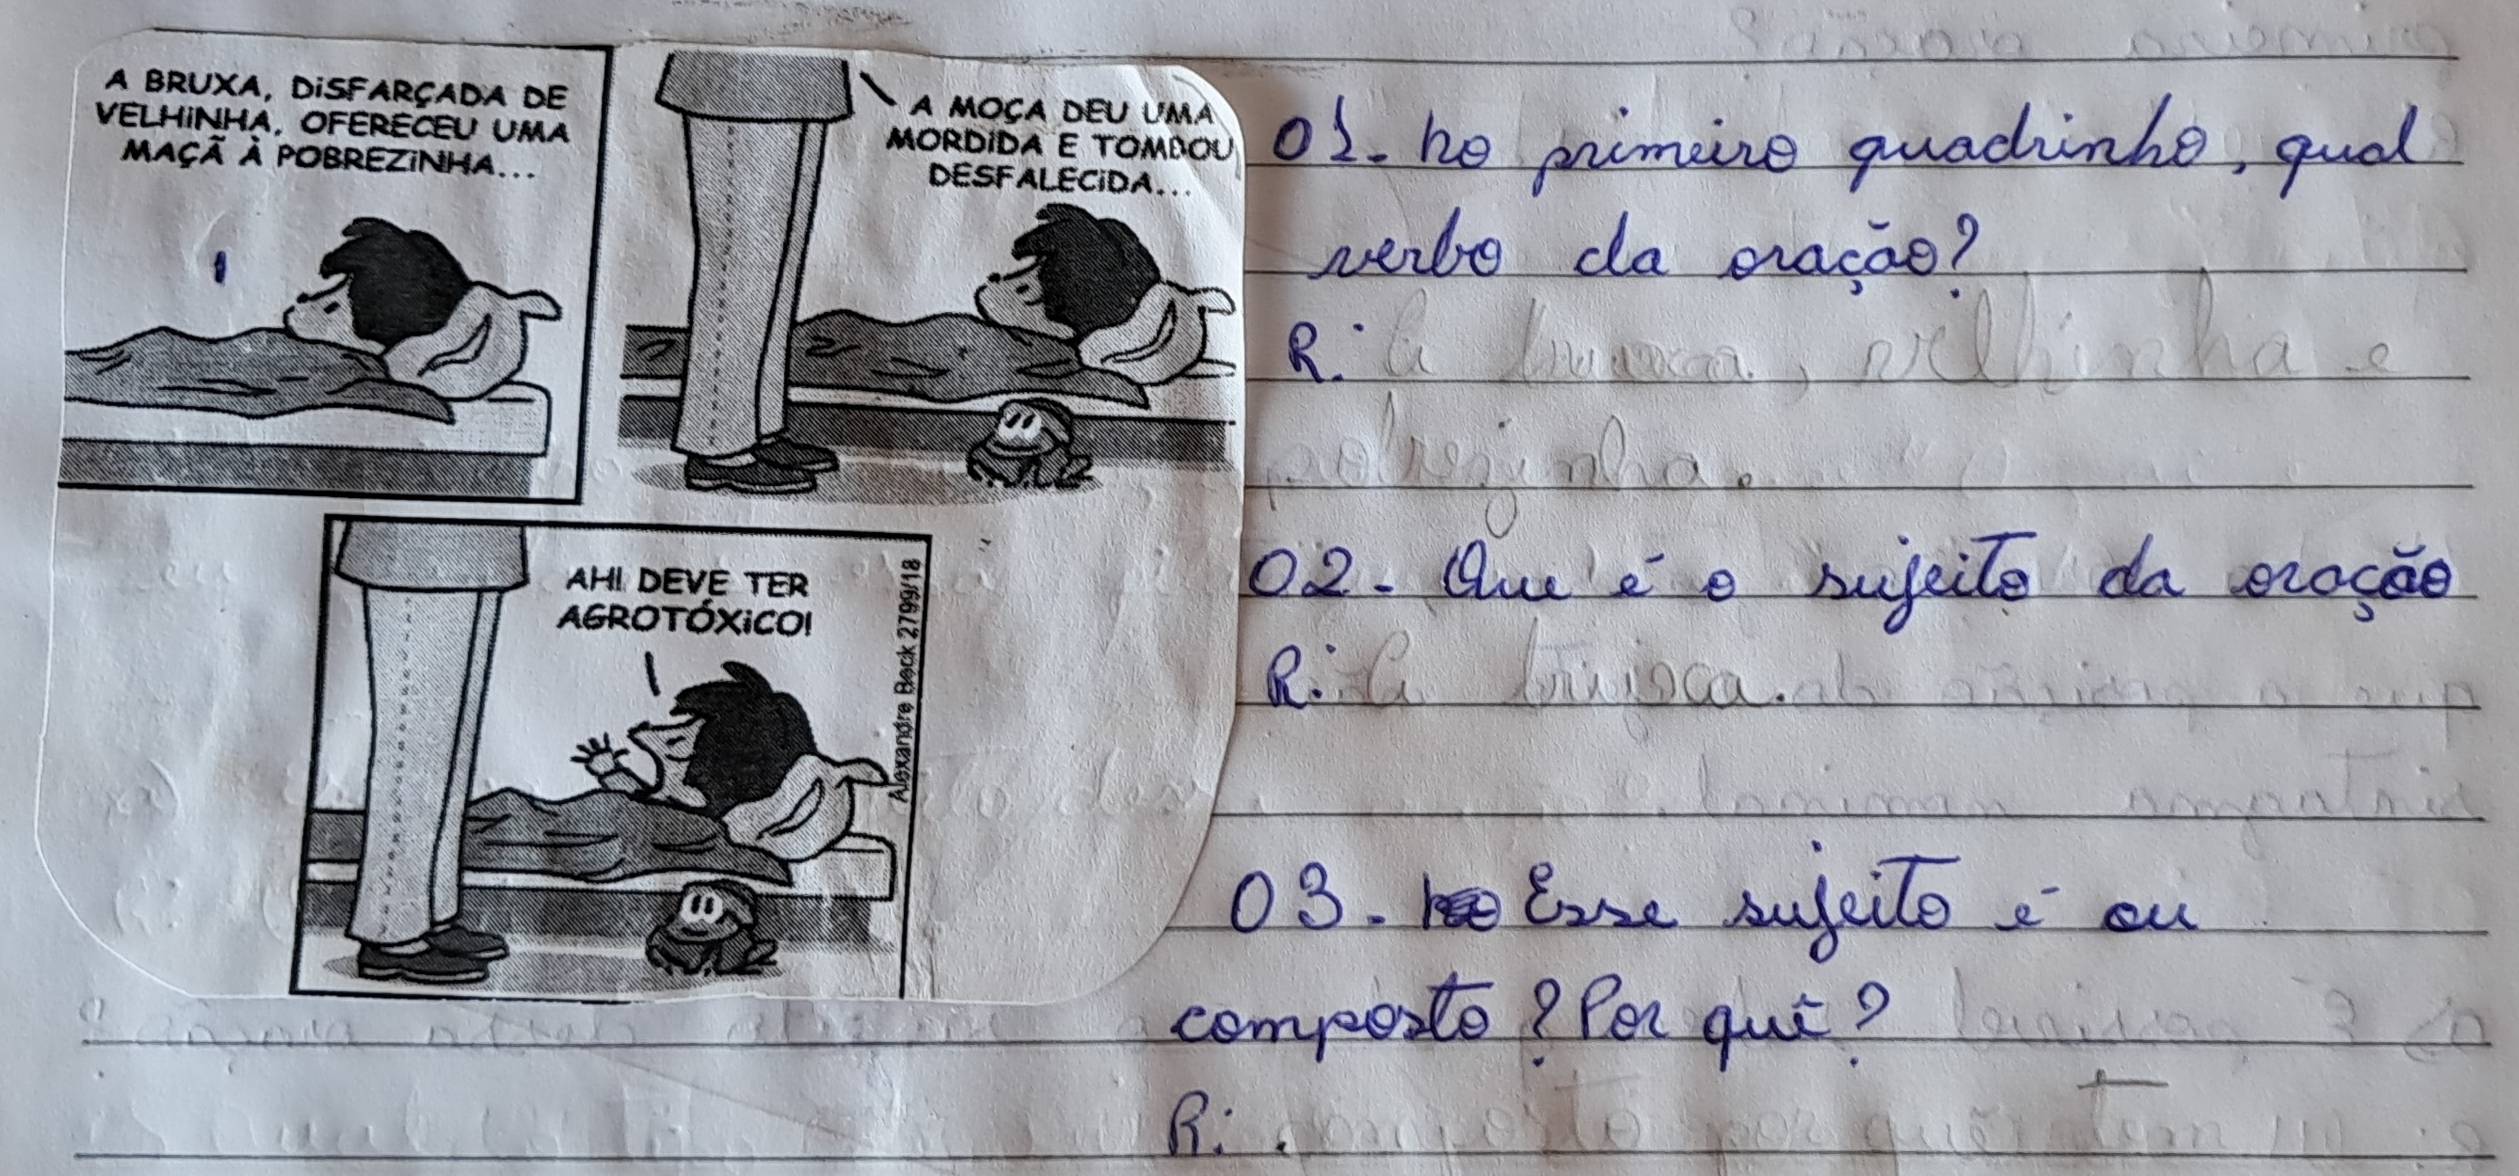 A BRUXA, DISFARÇADA DE
VELHINHA, OFERECEU UMA
MAÇÃ À POBREZINHA...
A MOÇA DEU UMA
MORDIDA E TOMBOU
DESFALECIDA...
AH! DEVE TER
AGROTÓXICO!
Alexandre Beck 2799/18
01- no primeiro quadrinho, qual
verbo da oração?
R: A bruxa, velhinha e
pobrezinha.
02- Que é o sujeito da oração
R: A bruxa.
03- Esse sujeito é ou
composto? Por quê?
R: composto por quê tem